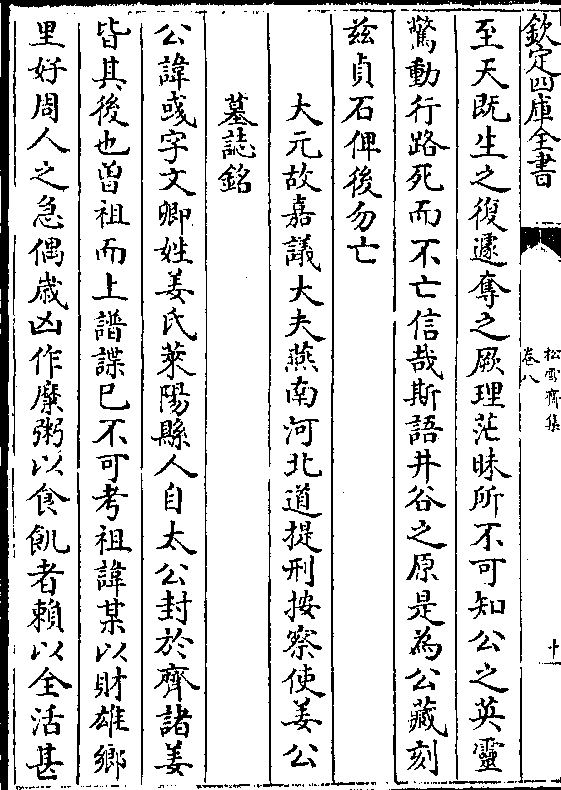 欽定四庫全書
松雪齋集
卷八
十
至天既生之復遽奪之厥理茫昧所不可知公之英靈
驚動行路死而不亡信哉斯語井谷之原是為公藏刻
兹貞石俾後勿亡
大元故嘉議大夫燕南河北道提刑按察使姜公
墓誌銘
公諱彧字文卿姓姜氏萊陽縣人自太公封於齊諸姜
皆其後也曾祖而上譜諜已不可考祖諱某以財雄鄉
里好周人之急偶歳凶作糜粥以食飢者賴以全活甚